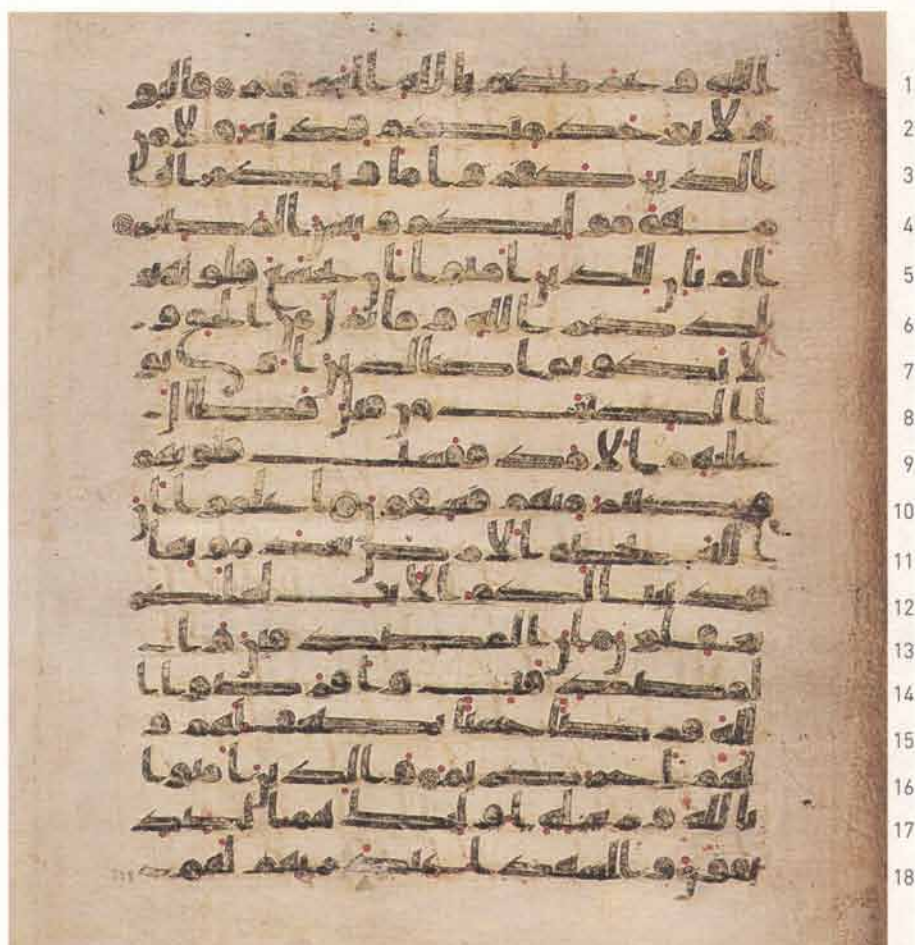 1 الله وغركم بالله الغرور فاليو
2 م لا يوخذ منكم فدية ولا من
3 الذين كفروا ماويكم النا
4 ر هي موليكم وبئس المصير
5 الم يان للذين امنوا ان تخشع قلوبهم
6 لذكر الله وما نزل من الحق و
7 لا يكونوا كالذين اوتو
8 ا الكتب من قبل فطال
9 عليهم الامد فقست قلوبهم
10 وكثير منهم فسقون اعلموا ان
11 الله يحي الارض بعد موتها
12 قد بينا لكم الايت لعلكم
13 تعقلون ان المصدقين وا
14 لمصدقت واقرضوا ا
15 لله قرضا حسنا يضعف لهم و
16 لهم اجر كريم والذين امنوا
17 بالله ورسله اوليك هم الصد
18 يقون والشهدا عند ربهم لهم